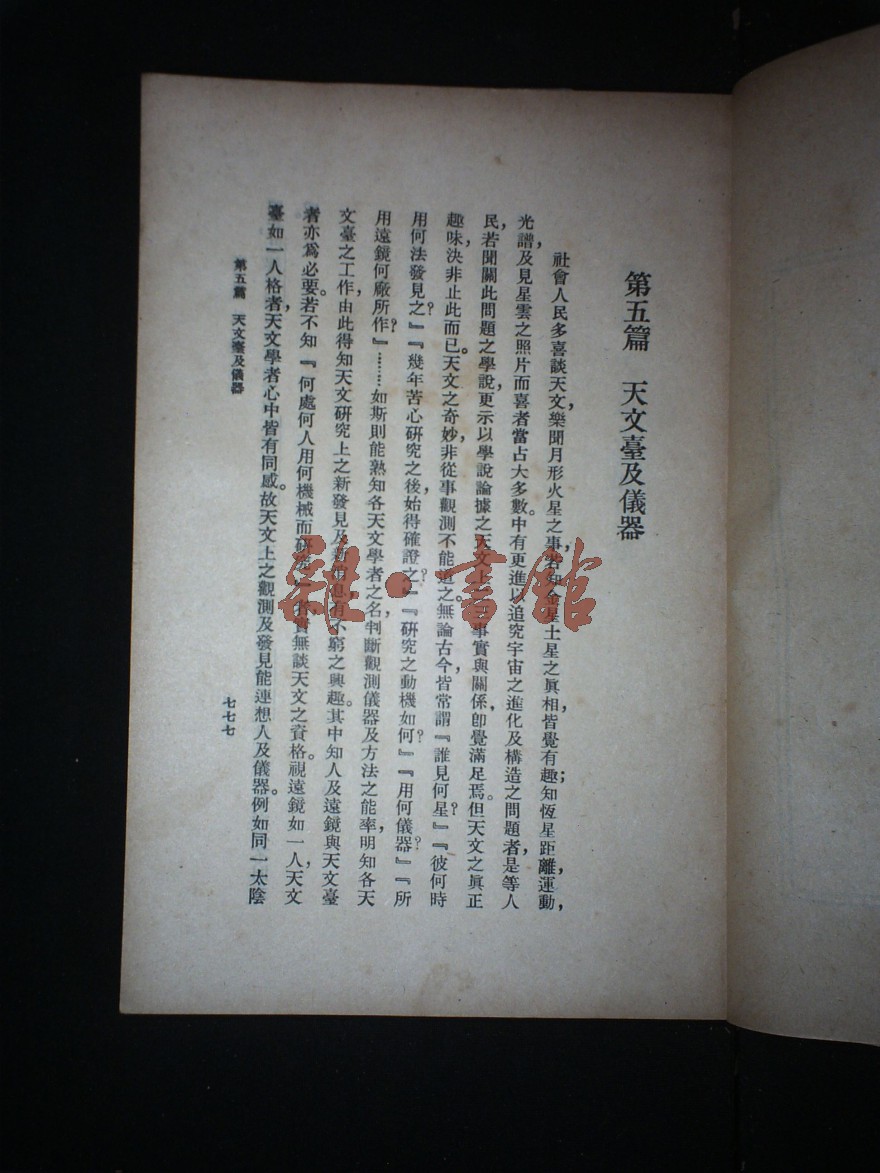 第五篇 天文臺及儀器
社會人民多喜談天文,樂聞月形火星之事,若知金星土星之眞相,皆覺有趣;知恆星距離,運動,
光譜,及見星雲之照片而喜者,當占大多數。中有更進以追究宇宙之進化及構造之問題者,是等人
民,若聞關此問題之學說,更示以學說論據之天文上之事實與關係,卽覺滿足焉。但天文之眞正
趣味,決非止此而已。天文之奇妙,非從事觀測不能道之。無論古今,皆常謂『誰見何星?』『彼何時
用何法發見之?』『幾年苦心硏究之後,始得確證之?』『硏究之動機如何?』『用何儀器?』『所
用遠鏡何廠所作?』……如斯則能熟知各天文學者之名,判斷觀測儀器及方法之能率,明知各天
文臺之工作,由此得知天文硏究上之新發見及新 有不窮之興趣。其中知人及遠鏡與天文臺
者亦爲必要。若不知『何處何人用何機械而硏究』者,實無談天文之資格。視遠鏡如一人,天文
臺如一人格者,天文學者心中皆有同感。故天文上之觀測及發見,能連想人及儀器。例如同一太陰
第五篇 天文臺及儀器
七七七
雜·書館